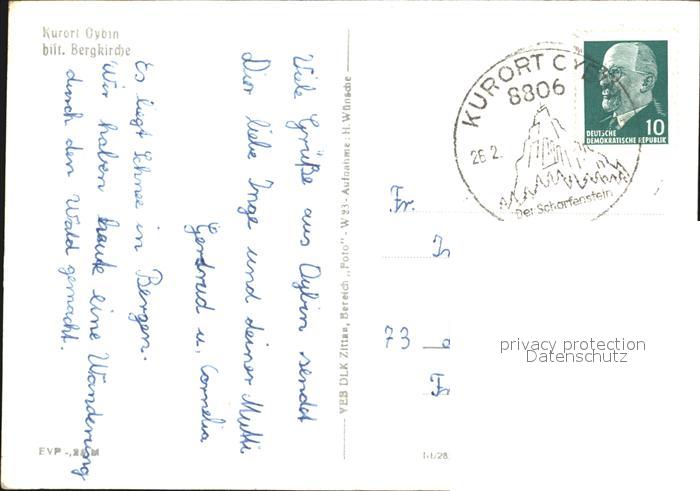 Kurort Oybin
hist. Bergkirche
Viele Grüße aus Oybin sendet
Dir liebe Inge und deiner Mutti
Gertrud u. Cornelia
Es liegt Schnee in Bergen.
Wir haben heute eine Wanderung
durch den Wald gemacht.
EVP
VEB DLK Zittau, Bereich „Foto" - W 23 - Aufnahme: H. Wünsche
KURORT OYBIN
8806
26.2.
Der Scharfenstein
10
DEUTSCHE
DEMOKRATISCHE REPUBLIK
Fr.
privacy protection
Datenschutz